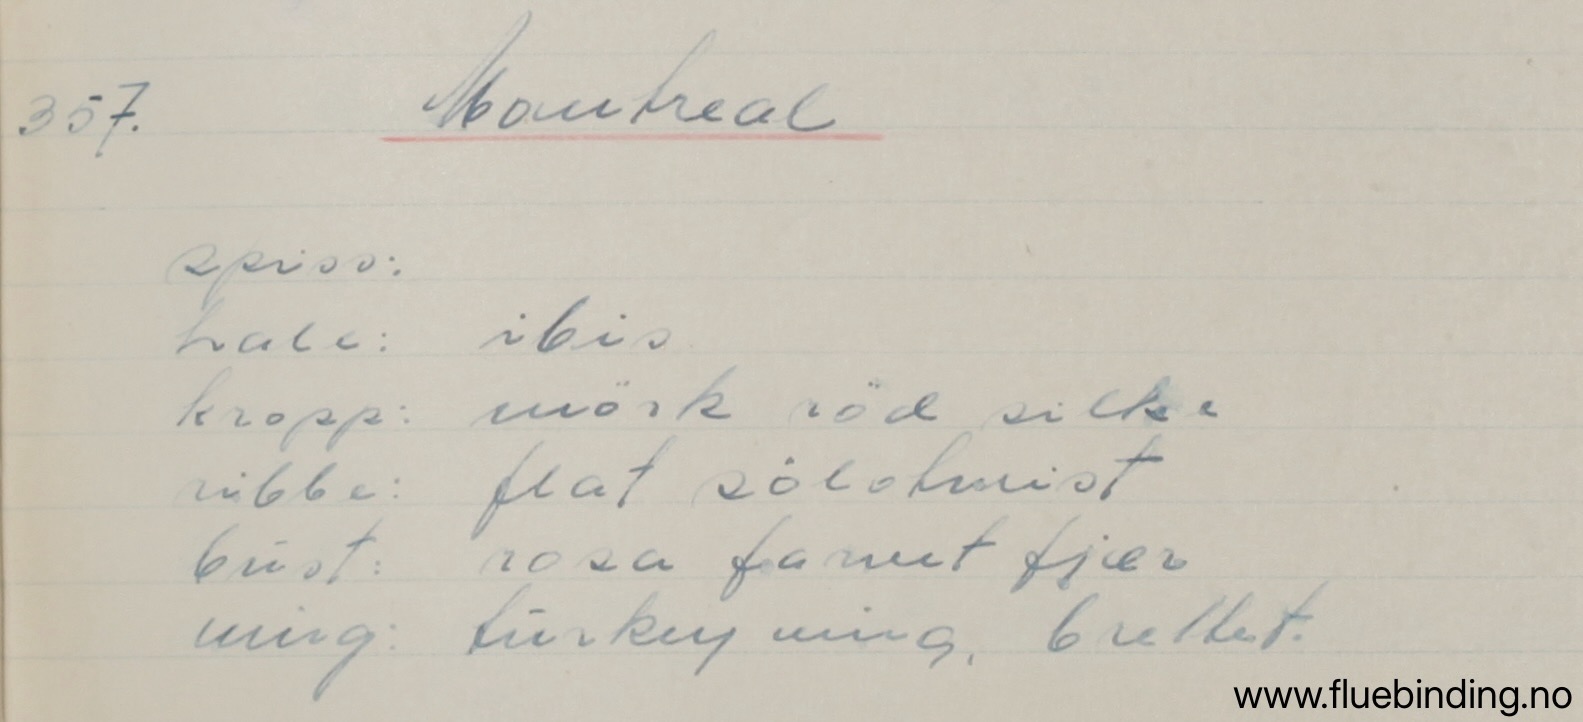 357. Montreal
spiss:
hale: ibis
kropp: mörk röd silke
ribbe: flat sölvtwist
büst: rosa farvet fjær
wing: türkey wing, brettet.
www.fluebinding.no